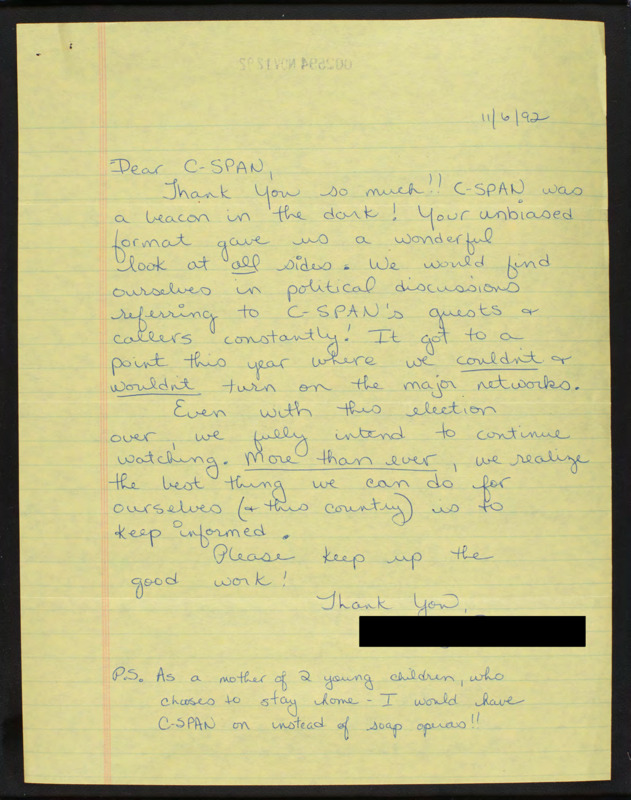 002594 NOV 12 92
11/6/92
Dear C-SPAN,
Thank You so much!! C-SPAN was
a beacon in the dark! Your unbiased
format gave us a wonderful
look at all sides. We would find
ourselves in political discussions
referring to C-SPAN's guests &
callers constantly! It got to a
point this year where we couldn't &
wouldn't turn on the major networks.
Even with this election
over, we fully intend to continue
watching. More than ever, we realize
the best thing we can do for
ourselves (& this country) is to
keep informed.
Please keep up the
good work!
Thank You,
P.S. As a mother of 2 young children, who
chooses to stay home - I would have
C-SPAN on instead of soap operas!!